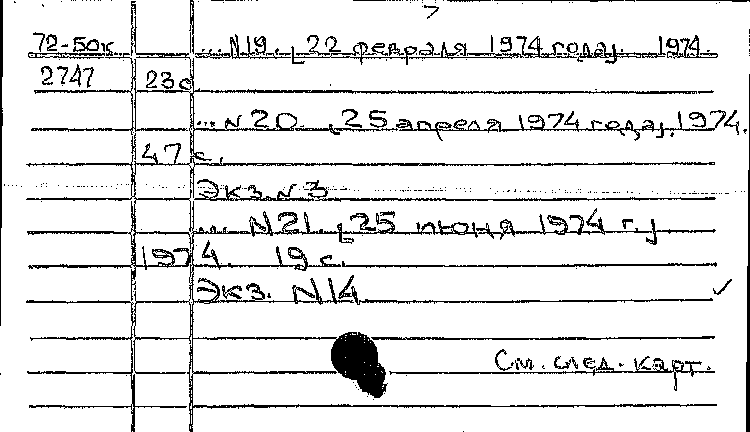 72-Бок ... N19. [22 февраля 1974 года]. 1974.
2747 23с
... N 20 [25 апреля 1974 года]. 1974.
47 с.
Экз. N 3
... N21. [25 июня 1974 г.]
1974. 19 с.
Экз. N14
См. след. карт.